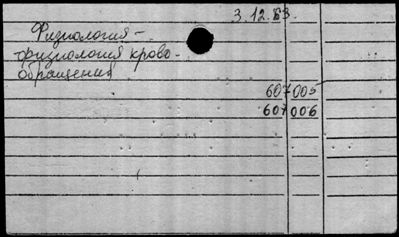 3.12.63.
Физиология –
физиология крово-
обращения
607005
607006